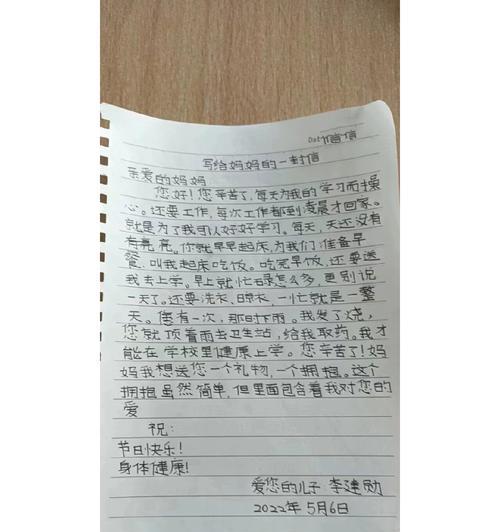 写给妈妈的一封信
亲爱的妈妈
您好!您辛苦了,每天为我的学习而操
心。还要工作,每次工作都到凌晨才回家。
就是为了我可以好好学习。每天,天还没有
有亮亮。你就早早起床,为我们准备早
餐,叫我起床吃饭。吃完早饭,还要送
我去上学。早上就忙碌怎么多,更别说
一天了。还要洗衣、晾衣,一忙就是一整
天。有一次,那时下雨。我发了烧,
您就顶着雨去卫生站,给我取药。我才
能在学校里健康上学。您辛苦了!妈
妈我想送您一个礼物,一个拥抱。这个
拥抱虽然简单,但里面包含着我对您的
爱
祝:
节日快乐!
身体健康!
爱您的儿子 李建勋
2022年5月6日